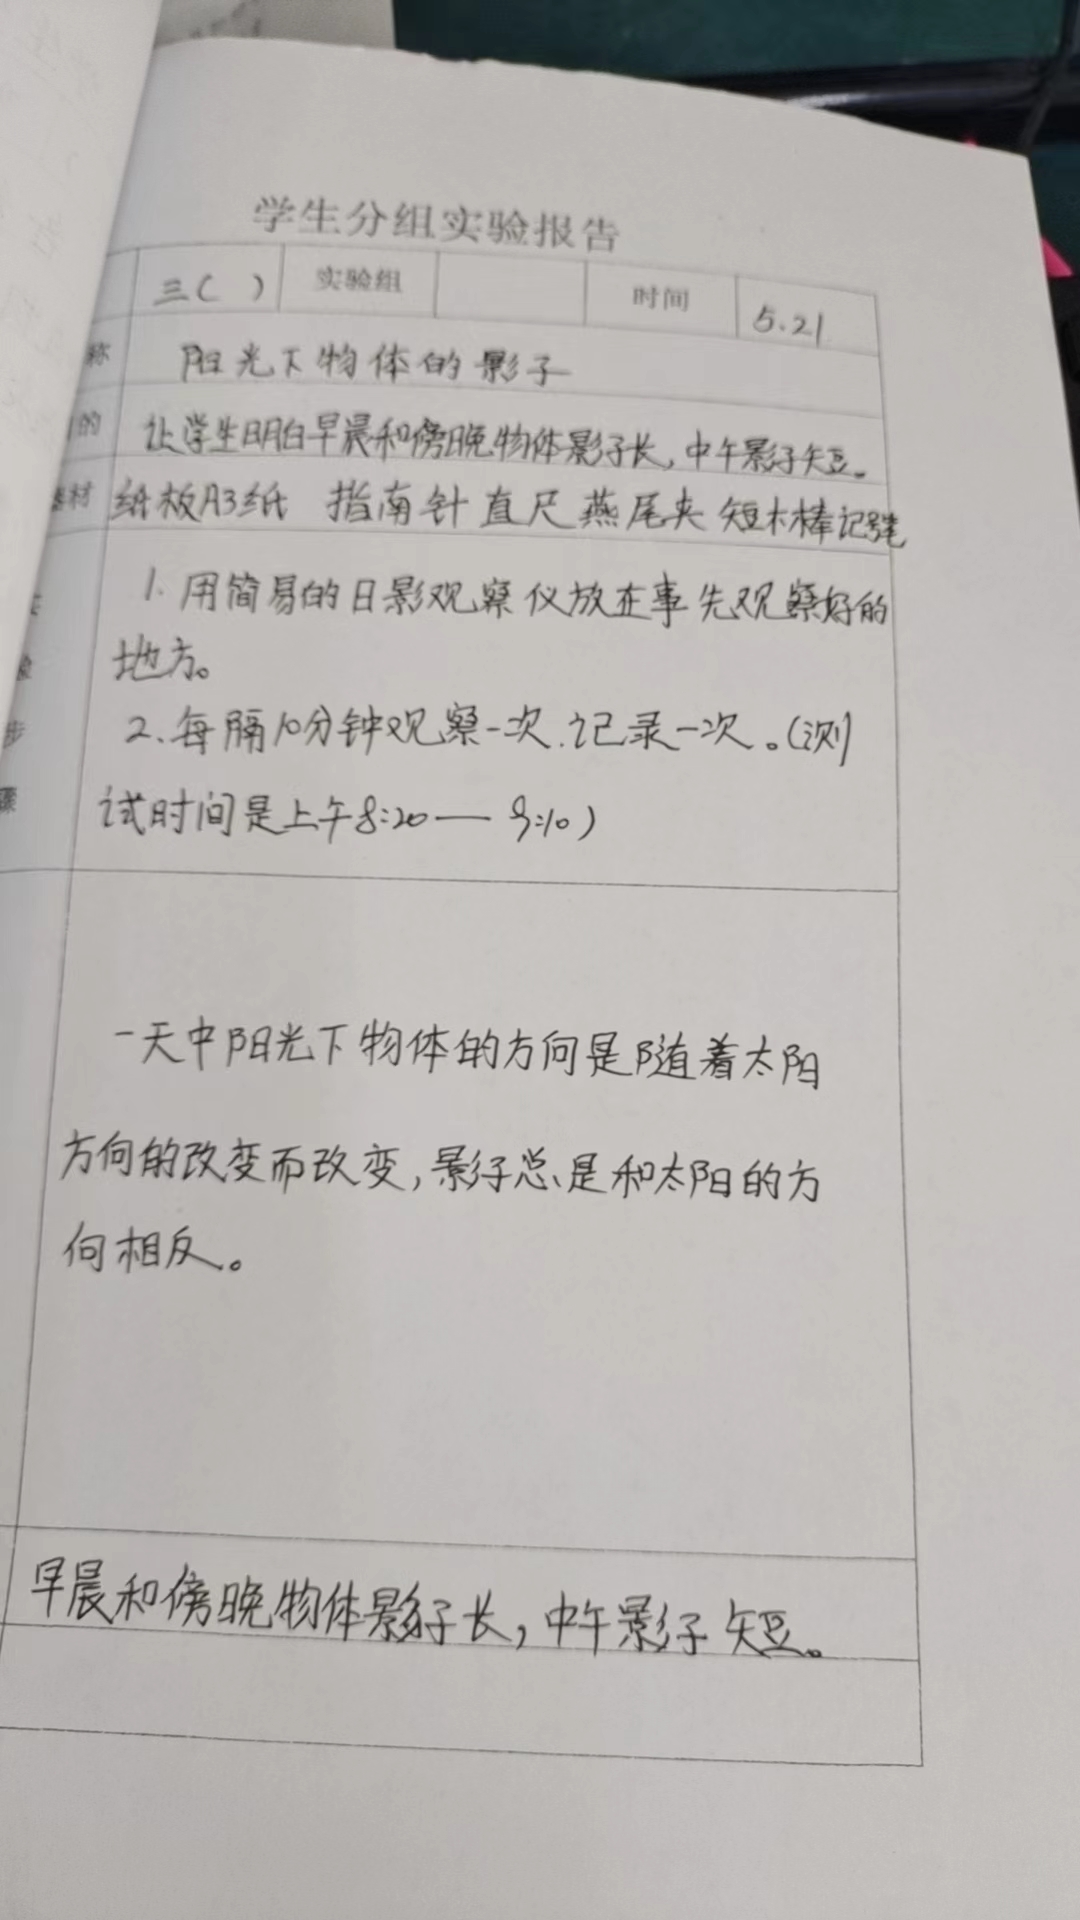 学生分组实验报告
三( ) 实验组 时间 5.21
称 阳光下物体的影子
的 让学生明白早晨和傍晚物体影子长,中午影子短。
器材 纸板A3纸 指南针 直尺 燕尾夹 短木棒记号笔
1. 用简易的日影观察仪放在事先观察好的
验 地方。
步 2、每隔10分钟观察一次.记录一次。(测
骤 试时间是上午8:20—9:10)
一天中阳光下物体的方向是随着太阳
方向的改变而改变,影子总是和太阳的方
向相反。
早晨和傍晚物体影子长,中午影子短。